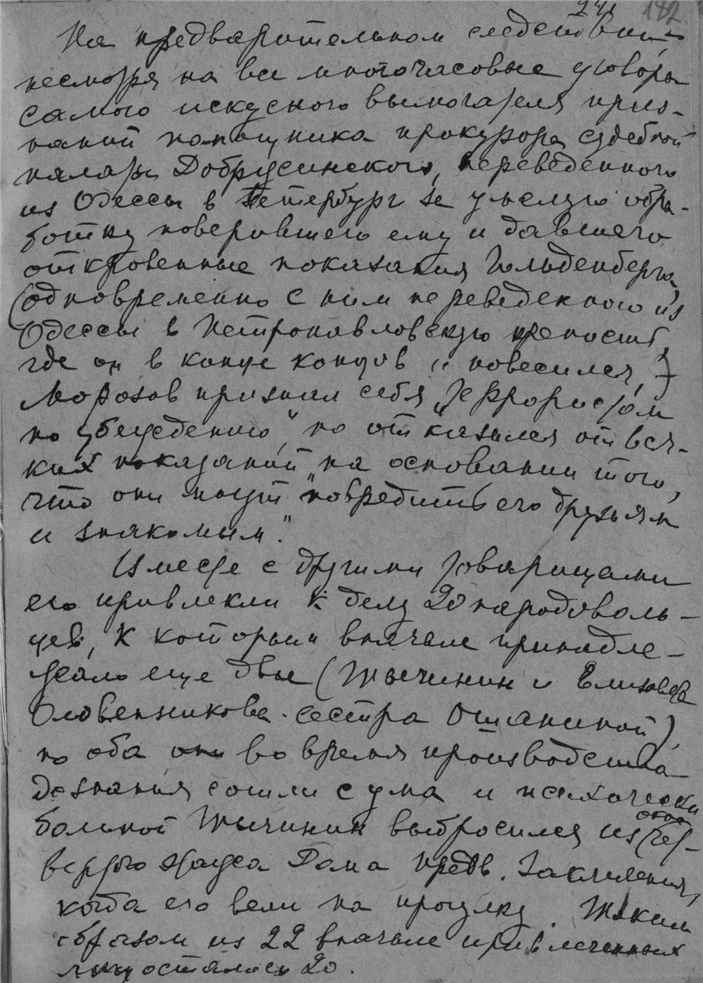 241 182
На предварительном следствии,
несмотря на все многочасовые уговоры
самого искусного вымогателя приз-
наний помощника прокурора судебной
палаты Добржинского, переведенного
из Одессы в Петербург за умелую обра-
ботку поверившего ему и давшего
откровенные показания Гольденберга,
(одновременно с ним переведенного из
Одессы в Петропавловскую крепость,
где он в конце концов и повесился,)
Морозов признал себя „террористом
по убеждению", но отказался от вся-
ких показаний на основании того,
что они могут "повредить его друзьям
и знакомым".
Вместе с другими товарищами
его привлекли к делу 20 народоволь-
цев, к которым вначале принадле-
жало еще двое (Тычинин и Елизавета
Оловенникова - сестра Ошаниной),
но оба они во время производства
дознания сошли с ума и психически
больной Тычинин выбросился из окон чет-
вертого этажа Дома предв. Заключения,
когда его вели на прогулку. Таким
образом из 22 вначале привлеченных
лиц осталось 20.